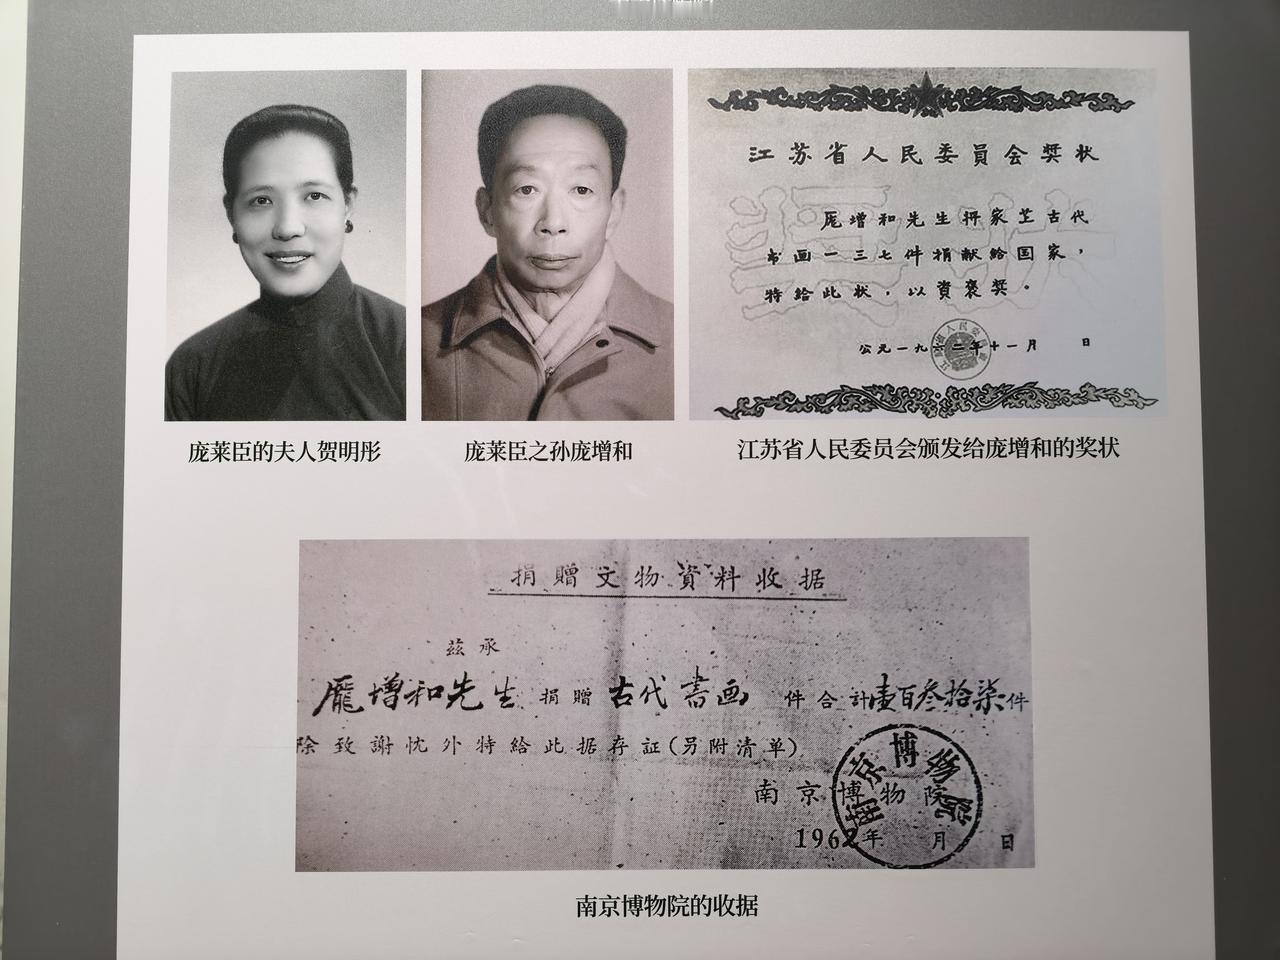 江苏省人民委員会奖状
庞增和先生将家芷古代
书画一三七件捐献给国家，
特给此状，以資褒奖。
公元一九六二年十一月　日
庞莱臣的夫人贺明彤
庞莱臣之孙庞增和
江苏省人民委员会颁发给庞增和的奖状
捐贈文物資料收据
茲承
龐增和先生捐贈古代書画　件合計壹百叁拾柒件
除致謝忱外特給此据存証(另附清单)
南京博物院
1962年　月　日
南京博物院
南京博物院的收据